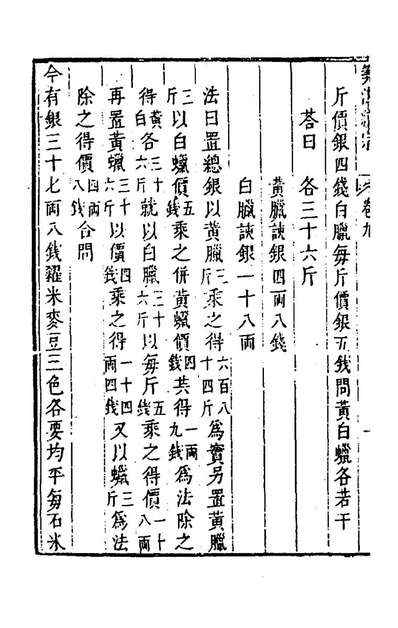 算法統宗 卷九
斤價銀四錢白臘每斤價銀五錢問黃白蠟各若干
荅曰 各三十六斤
黃臘該銀四兩八錢
白臘該銀一十八兩
法曰置總銀以黃臘三斤乘之得六百八十四斤為實另置黃臘
三斤以白蠟價五錢乘之併黃蠟價四錢共得一兩九錢為法除之
得黃白各三十六斤就以白臘三十六斤以每斤五錢乘之得價一十八兩
再置黃蠟三十六斤以價四錢乘之得一十四兩四錢又以蠟三斤為法
除之得價四兩八錢合問
今有銀三十七兩八錢糴米麥豆三色各要均平每石米